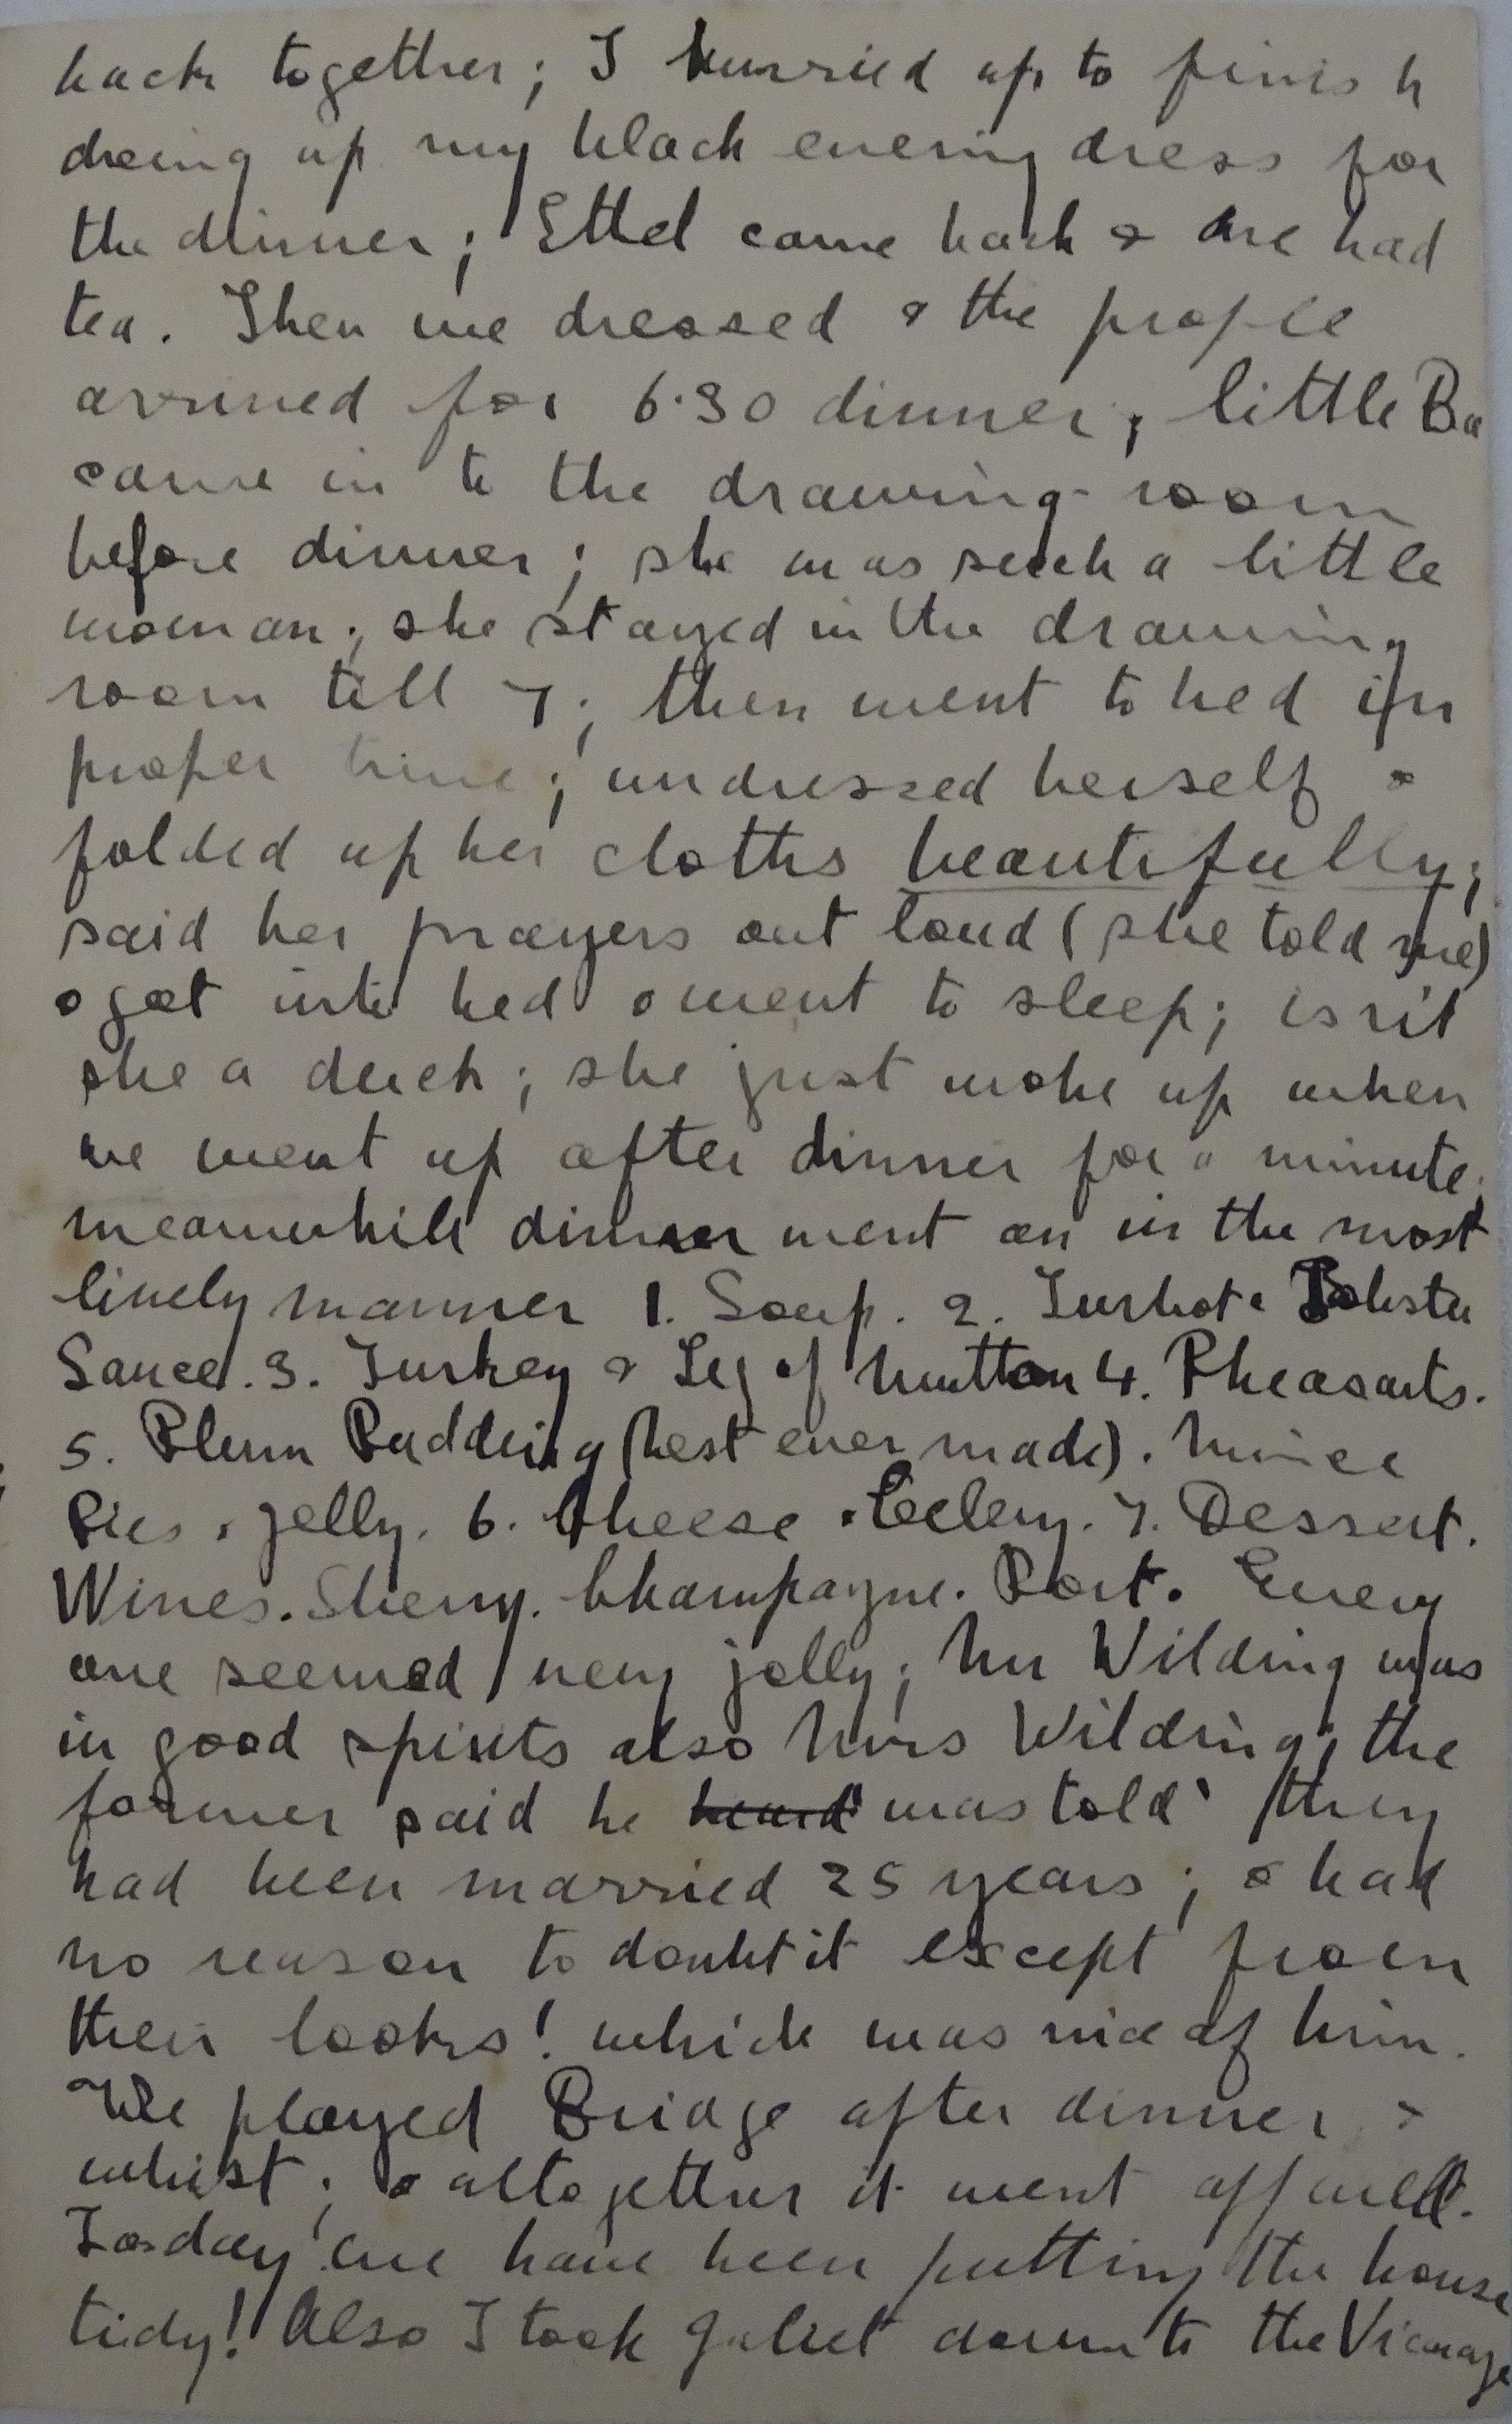 back together; I hurried up to finish
doing up my black evening dress for
the dinner; Ethel came back & we had
tea. Then we dressed & the people
arrived for 6.30 dinner; little Ba
came in to the drawing-room
before dinner; she was such a little
woman; she stayed in the drawing
room till 7; then went to bed in
proper time; undressed herself &
folded up her cloths beautifully;
said her prayers out loud (she told me)
& got into bed & went to sleep; isn't
she a duck; she just woke up when
we went up after dinner for a minute;
meanwhile dinner went on in the most
lively manner 1. Soup. 2. Turbot & Lobster
Sauce. 3. Turkey & Leg of Mutton 4. Pheasants.
5. Plum Pudding (best ever made). Mince
Pies & jelly. 6. Cheese & Celery. 7. Dessert.
Wines. Sherry. Champagne. Port. Every
one seemed very jolly; Mr Wilding was
in good spirits also Mrs Wilding; the
former said he heard was told they
had been married 25 years; & had
no reason to doubt it except from
their looks! which was nice of him.
We played Bridge after dinner &
whist; & altogether it went off well.
To-day we have been putting the house
tidy! Also I took Juliet down to the Vicarage